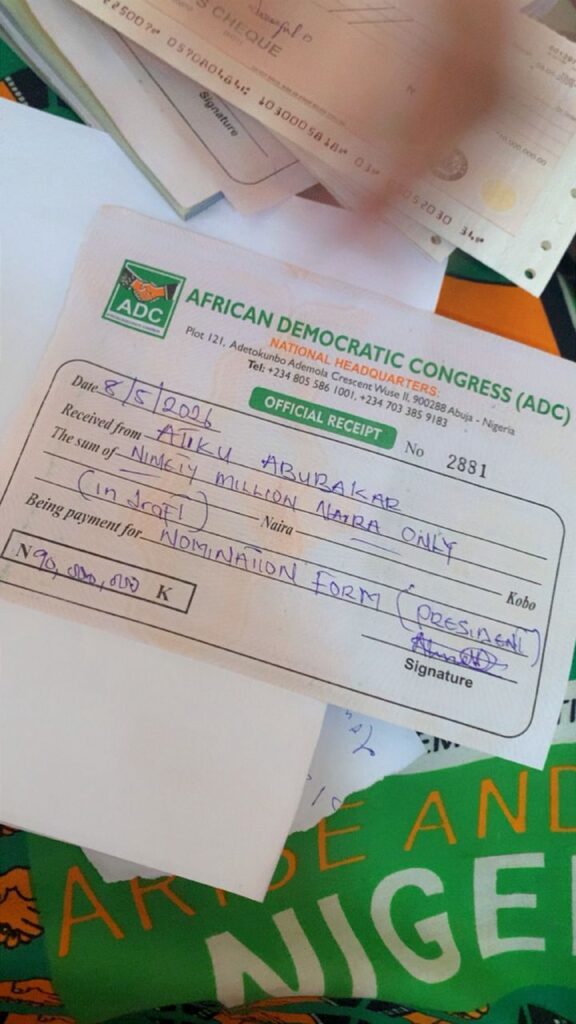 S CHEQUE
Signature
ADC
AFRICAN DEMOCRATIC CONGRESS (ADC)
NATIONAL HEADQUARTERS:
Plot 121, Adetokunbo Ademola Crescent Wuse II, 900288 Abuja - Nigeria
Tel: +234 805 586 1001, +234 703 385 9183
OFFICIAL RECEIPT
No 2881
Date 8/5/2026
Received from ATIKU ABUBAKAR
The sum of NINETY MILLION NAIRA ONLY
(in draft) Naira Kobo
Being payment for NOMINATION FORM (PRESIDENT)
N 90,000,000 K
Signature
ARISE AND
NIGE